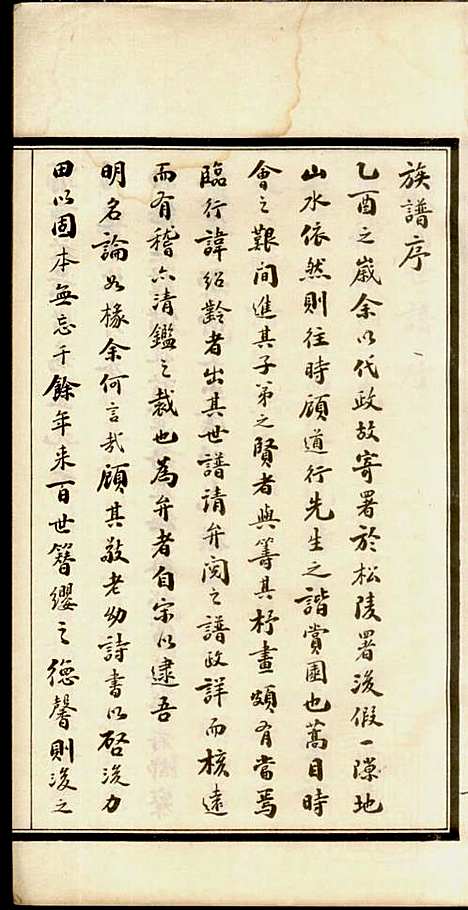 族譜序
乙酉之歲余以代政故寄署於松陵署後假一隙地
山水依然則往時顧道行先生之諧賞園也蒿目時
會之艱間進其子弟之賢者與籌其杼畫頗有當焉
臨行諱紹齡者出其世譜請弁閱之譜政詳而核遠
而有稽亦清鑑之裁也為弁者自宗以逮吾
明名論如椽余何言哉顧其敬老幼詩書以啓後力
田以固本無忘千餘年來百世簪纓之德馨則後之